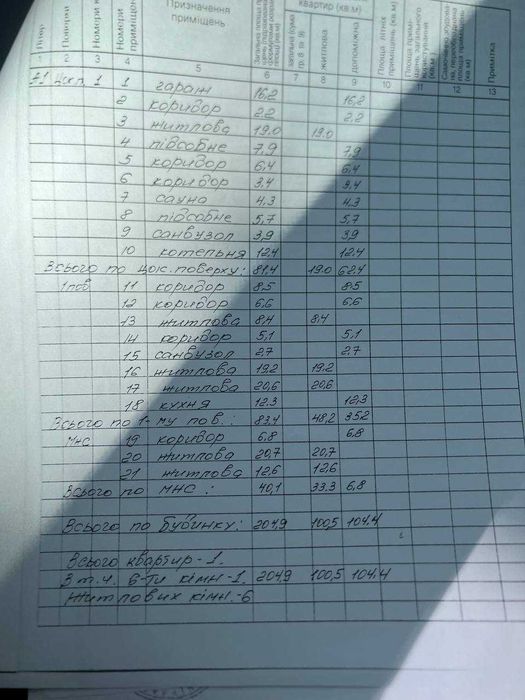 Призначення приміщень
квартир (кв м)
Літер
Поверхи
Номери
Номери приміщень
загальна площа
загальна (сума гр. 8 та 9)
житлова
допоміжна
Площа літніх приміщень (кв м)
Площа приміщень загального користування (кв м)
Примітка
1 2 3 4 5 6 7 8 9 10 11 12 13
А1 цок.п. 1 1 гараж 16,2 16,2
2 коридор 2,2 2,2
3 житлова 19.0 19.0
4 підсобне 7,9 7,9
5 коридор 6,4 6.4
6 коридор 3,4 3,4
7 сауна 4,3 4.3
8 підсобне 5,7 5.7
9 санвузол 3,9 3.9
10 котельня 12,4 12.4
Всього по цок. поверху: 81,4 19.0 62.4
1 пов 11 коридор 8,5 8.5
12 коридор 6,6 6,6
13 житлова 8,4 8,4
14 коридор 5,1 5.1
15 санвузол 2,7 2,7
16 житлова 19,2 19,2
17 житлова 20,6 20,6
18 кухня 12,3 12,3
Всього по 1-му пов.: 83,4 48,2 35,2
мнс 19 коридор 6,8 6,8
20 житлова 20,7 20,7
21 житлова 12,6 12,6
Всього по мнс: 40,1 33.3 6,8
Всього по будинку: 204,9 100,5 104.4
Всього квартир - 1.
В т.ч. 6-ти кімн.-1. 204,9 100,5 104,4
Житлових кімн.-6